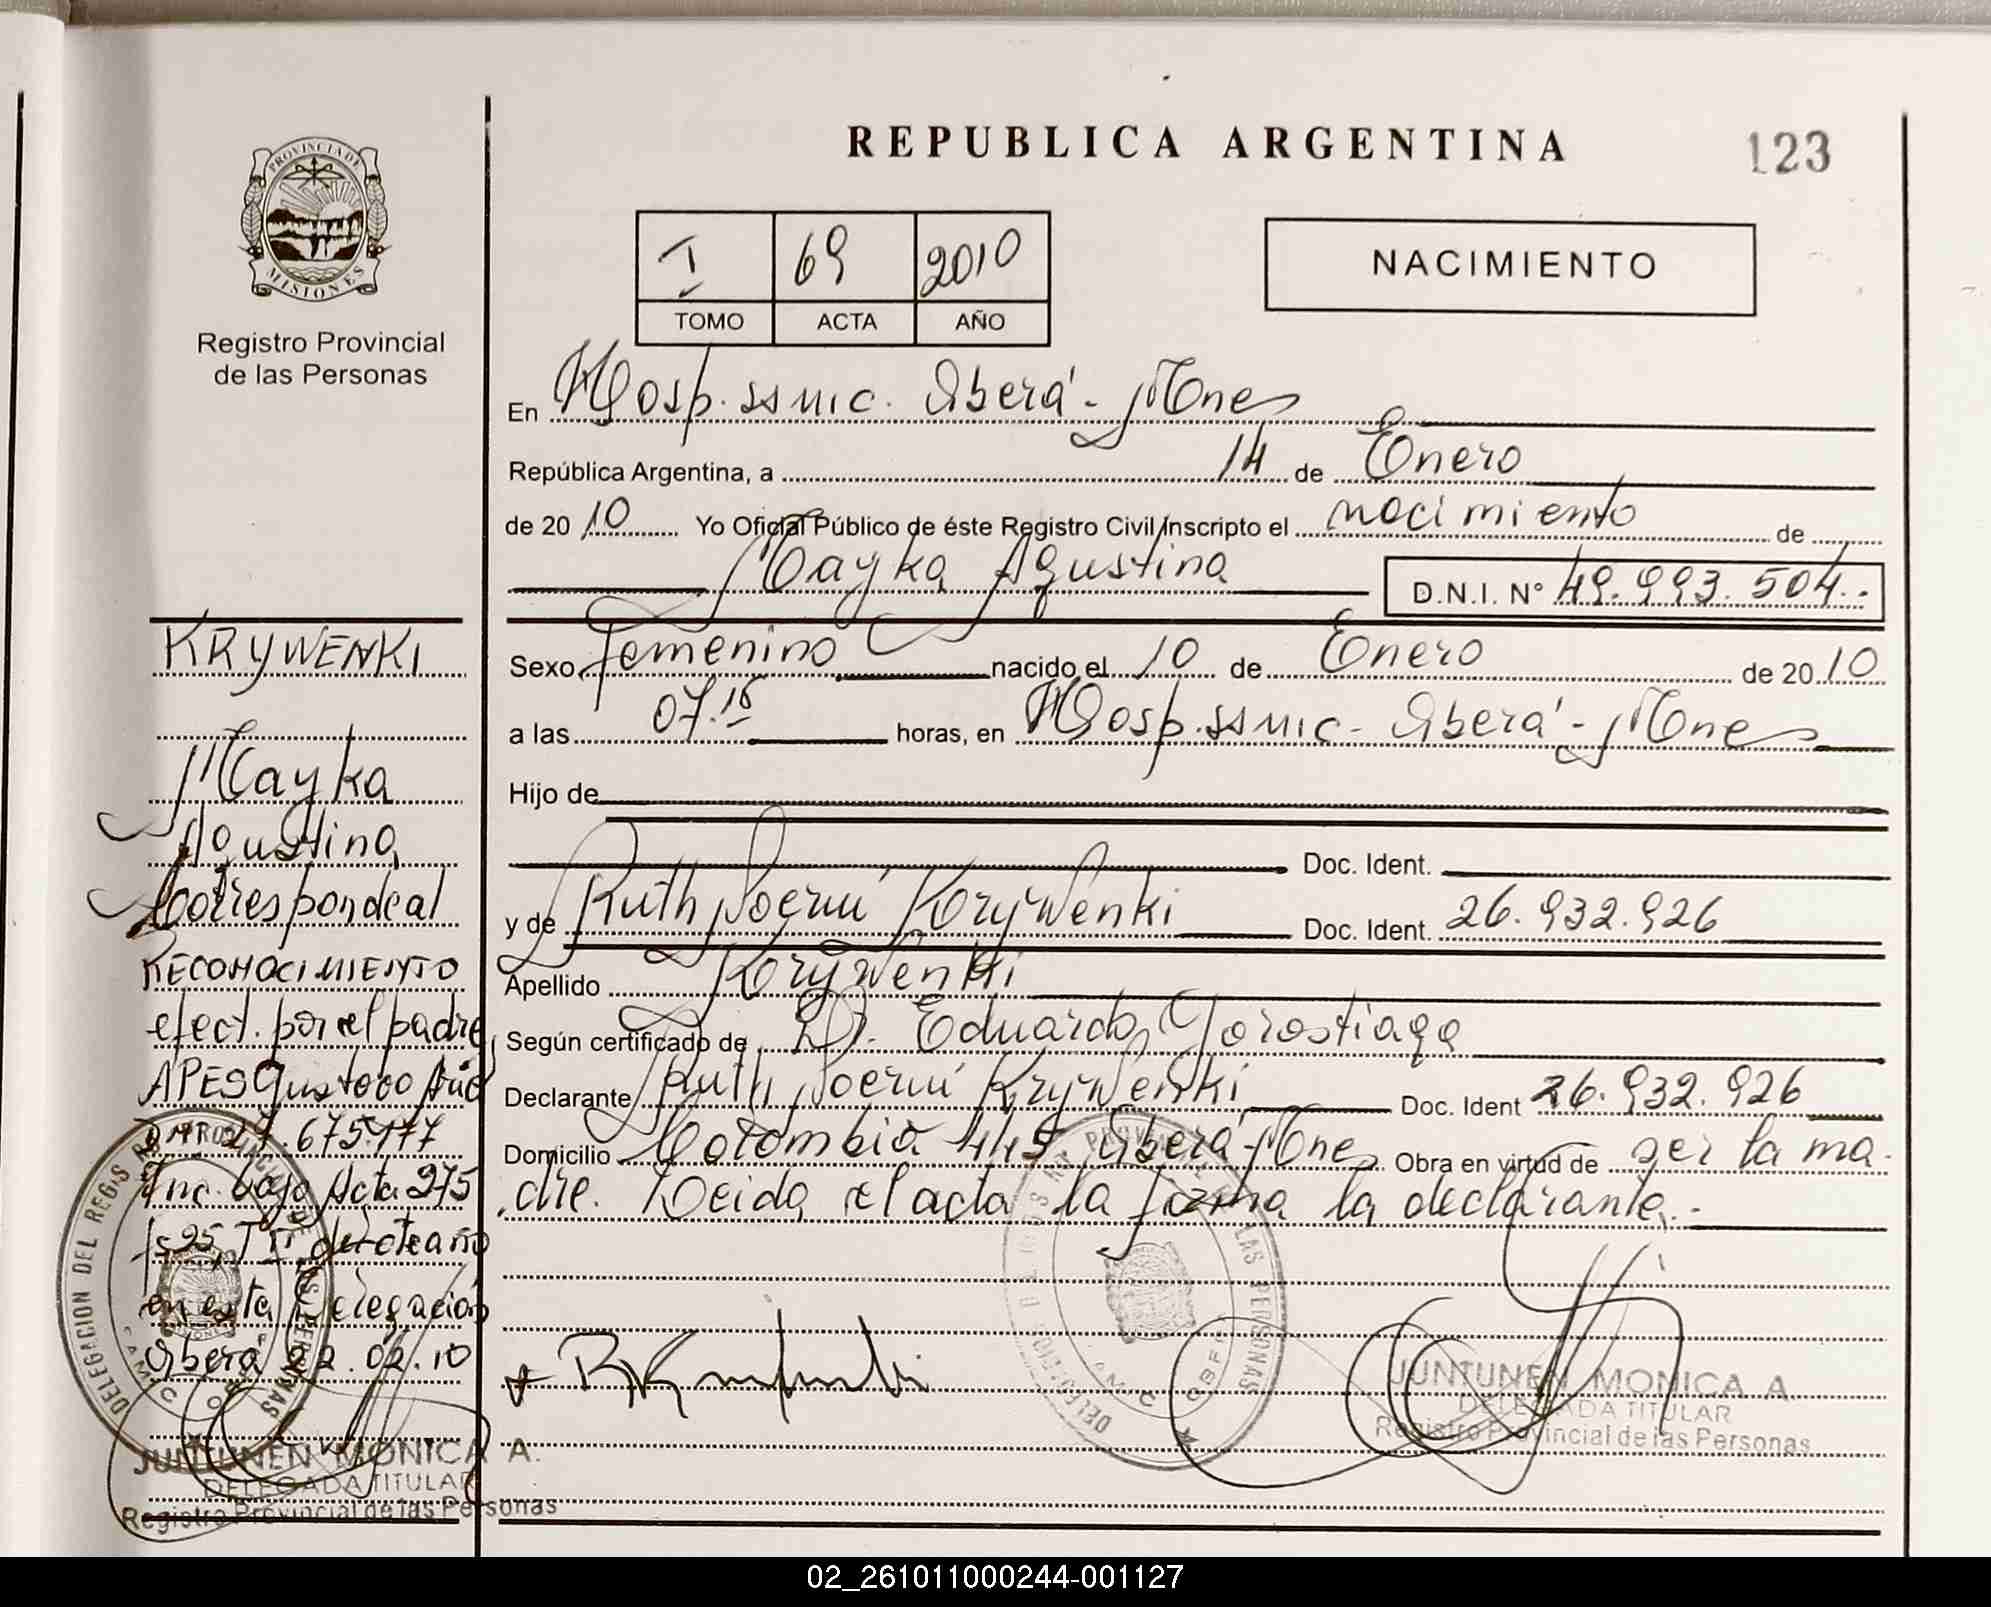 REPUBLICA ARGENTINA
123
PROVINCIA DE
MISIONES
Registro Provincial
de las Personas
I 69 2010
TOMO ACTA AÑO
NACIMIENTO
En Hosp. ssmic. Oberá - Mnes
República Argentina, a 14 de Enero
de 20 10 Yo Oficial Público de éste Registro Civil Inscripto el nacimiento de
Mayka Agustina D.N.I. N° 49.993.504.-
Sexo femenino nacido el 10 de Enero de 20 10
a las 07.15 horas, en Hosp. ssmic - Oberá - Mnes
Hijo de
Doc. Ident.
y de Ruth Noemí KryWenki Doc. Ident. 26.932.926
Apellido KryWenki
Según certificado de Dr. Eduardo Gorostiaga
Declarante Ruth Noemí KryWenki Doc. Ident 26.932.926
Domicilio Colombia 445 Oberá - Mnes Obra en virtud de ser la ma-
dre. Leida el acta la firma la declarante.-
JUNTUNEN MONICA A.
DELEGADA TITULAR
Registro Provincial de las Personas
KRYWENKI
Mayka
Agustina
Corresponde al
RECONOCIMIENTO
efect. por el padre
APES Gustavo Ariel
DNI 27.675.177
Inc. bajo Acta 275
fs 25, T II de este año
en esta Delegación
Oberá 22.02.10
JUNTUNEN MONICA A.
DELEGADA TITULAR
Registro Provincial de las Personas
02_261011000244-001127